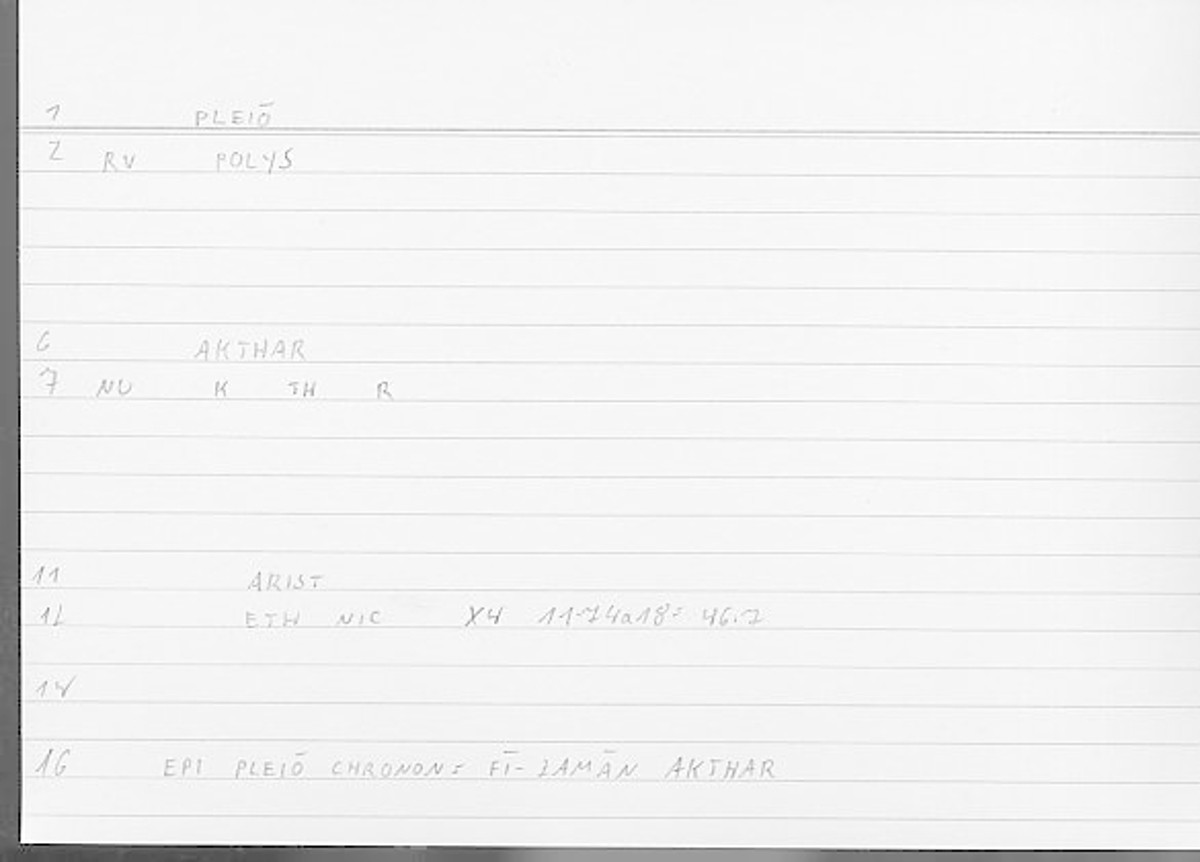 1 PLEIŌ
2 RV POLYS
6 AKTHAR
7 NU K TH R
11 ARIST
12 ETH NIC X4 1174a18= 46.7
14
16 EPI PLEIŌ CHRONON= FĪ- ZAMĀN AKTHAR